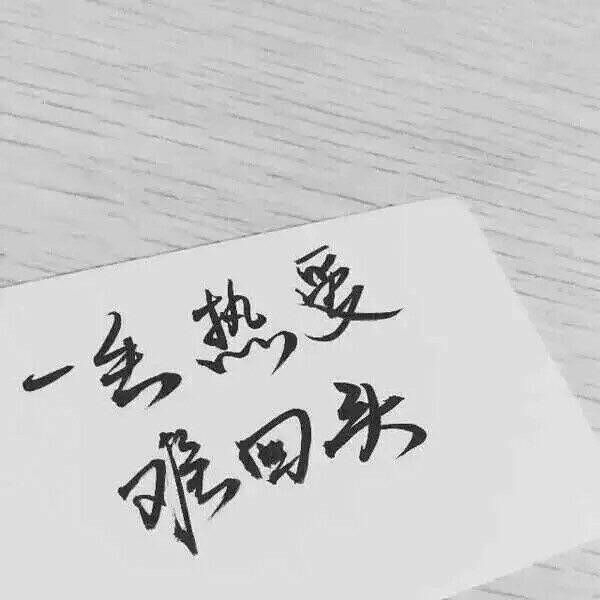 一去热爱
难回头